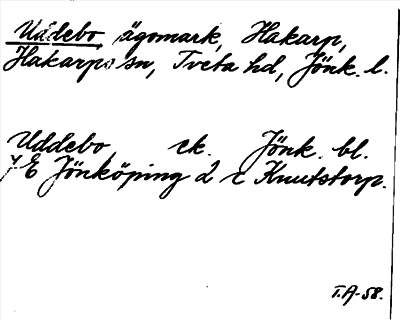 Uddebo, ägomark, Hakarp,
Hakarps sn, Tveta hd, Jönk. l.
Uddebo ek. Jönk. bl.
7 E Jönköping 2 c Knutstorp.
T.A-58.